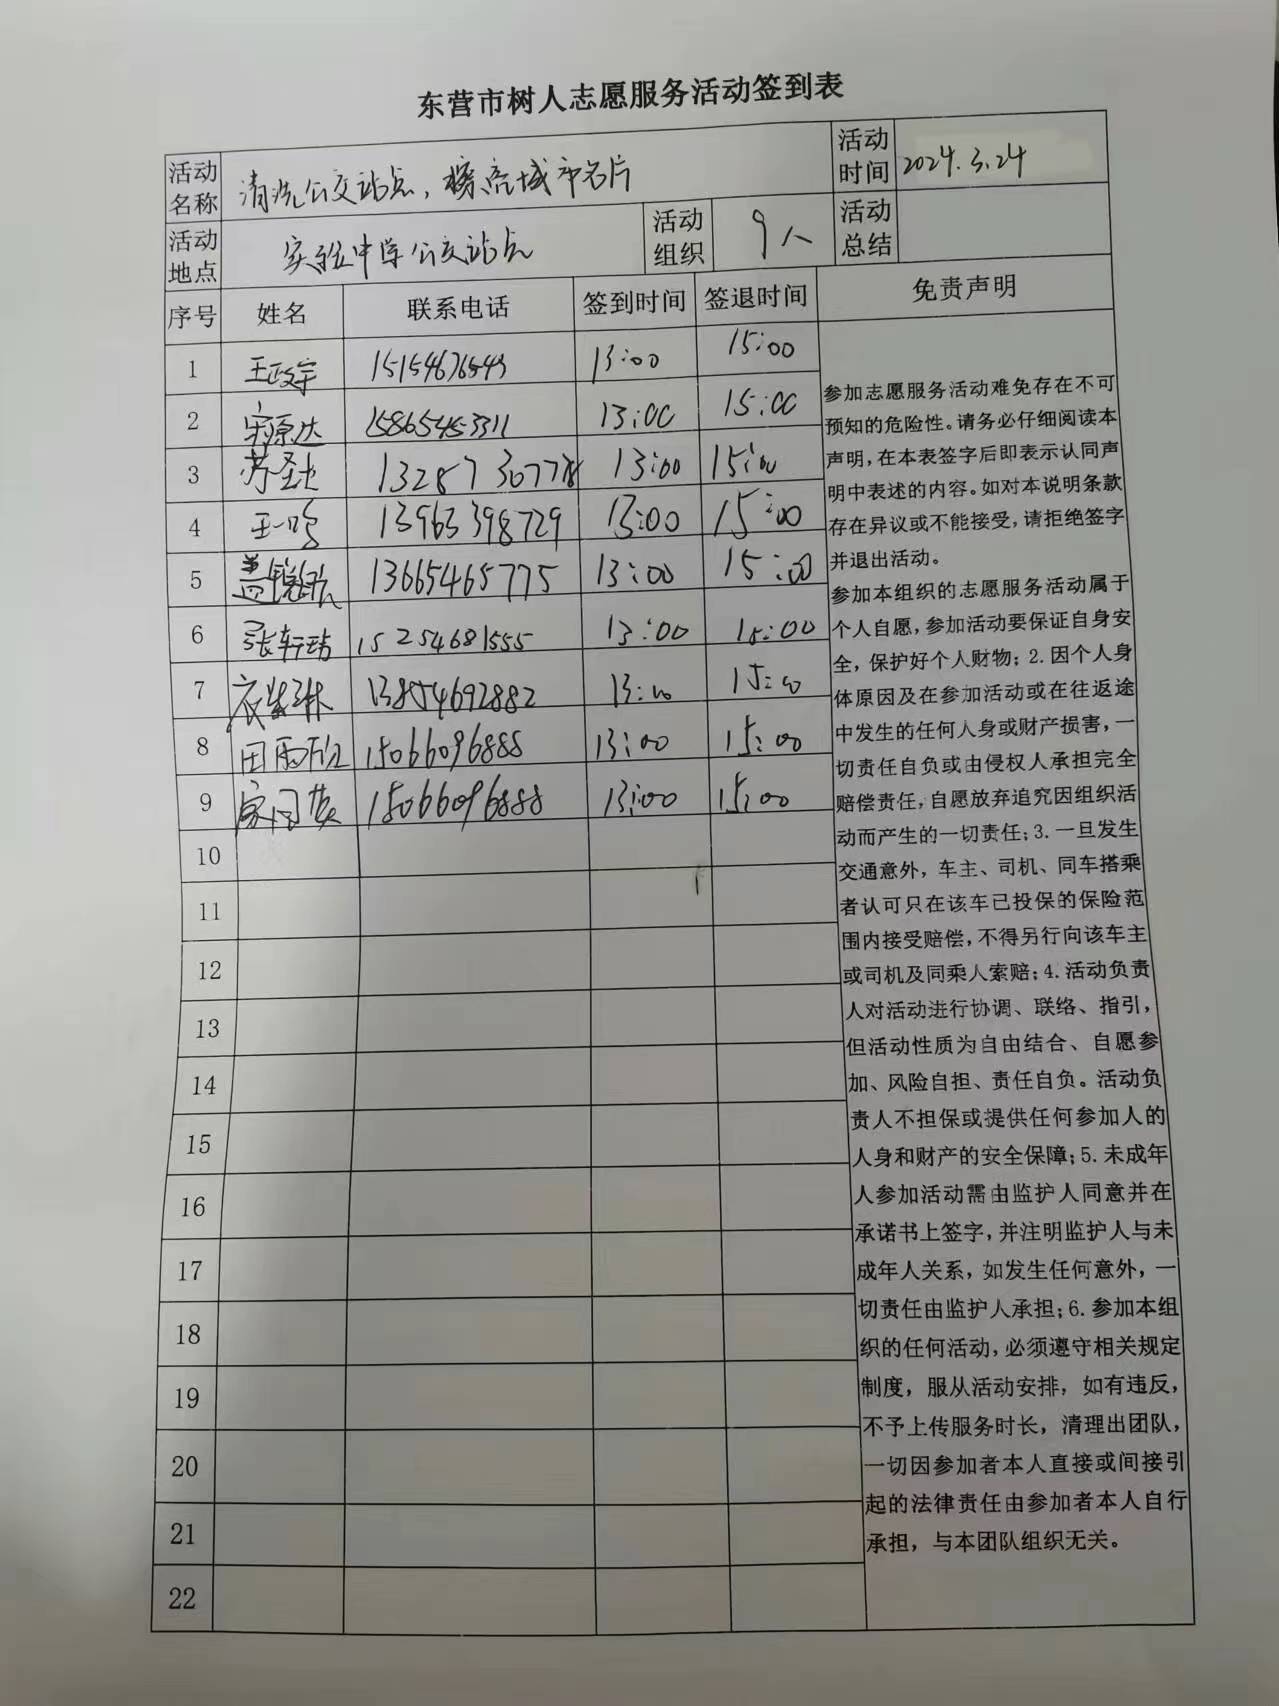 东营市树人志愿服务活动签到表
活动名称 清洗公交站点，擦亮城市名片 活动时间 2024.3.24
活动地点 实验中学公交站点 活动组织 9人 活动总结
序号 姓名 联系电话 签到时间 签退时间 免责声明
1 王政宇 15154676543 13:00 15:00
2 宋原达 15865453311 13:00 15:00
3 苏圣 13287307778 13:00 15:00
4 王一鸣 13963398729 13:00 15:00
5 盖 13665465775 13:00 15:00
6 张轩 15254681555 13:00 15:00
7 衣紫琳 13854692882 13:00 15:00
8 田雨欣 15066096888 13:00 15:00
9 15066096888 13:00 15:00
10
11
12
13
14
15
16
17
18
19
20
21
22
参加志愿服务活动难免存在不可
预知的危险性。请务必仔细阅读本
声明，在本表签字后即表示认同声
明中表述的内容。如对本说明条款
存在异议或不能接受，请拒绝签字
并退出活动。
参加本组织的志愿服务活动属于
个人自愿，参加活动要保证自身安
全，保护好个人财物；2.因个人身
体原因及在参加活动或在往返途
中发生的任何人身或财产损害，一
切责任自负或由侵权人承担完全
赔偿责任，自愿放弃追究因组织活
动而产生的一切责任；3.一旦发生
交通意外，车主、司机、同车搭乘
者认可只在该车已投保的保险范
围内接受赔偿，不得另行向该车主
或司机及同乘人索赔；4.活动负责
人对活动进行协调、联络、指引，
但活动性质为自由结合、自愿参
加、风险自担、责任自负。活动负
责人不担保或提供任何参加人的
人身和财产的安全保障；5.未成年
人参加活动需由监护人同意并在
承诺书上签字，并注明监护人与未
成年人关系，如发生任何意外，一
切责任由监护人承担；6.参加本组
织的任何活动，必须遵守相关规定
制度，服从活动安排，如有违反，
不予上传服务时长，清理出团队，
一切因参加者本人直接或间接引
起的法律责任由参加者本人自行
承担，与本团队组织无关。